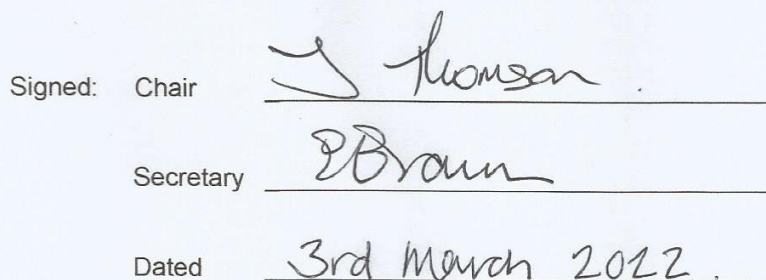 Signed: Chair J Thomson
Secretary E Brown
Dated 3rd March 2022.